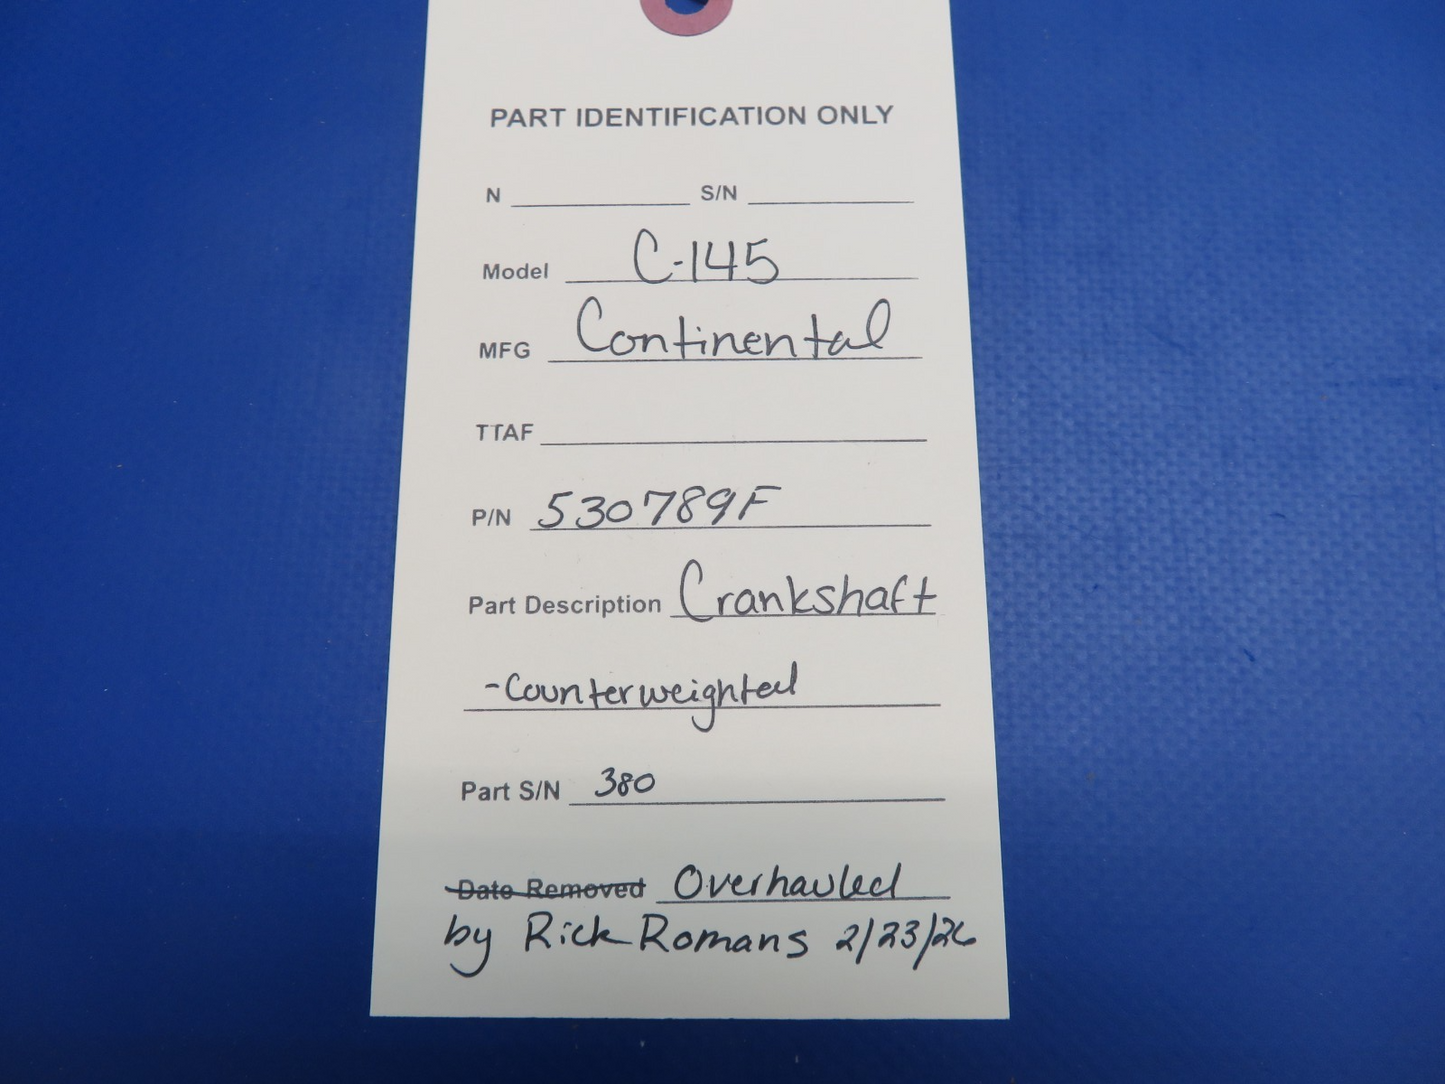 PART IDENTIFICATION ONLY
N S/N
Model C-145
MFG Continental
TTAF
P/N 530789F
Part Description Crankshaft
-Counterweighted
Part S/N 380
Date Removed Overhauled
by Rick Romans 2/23/26